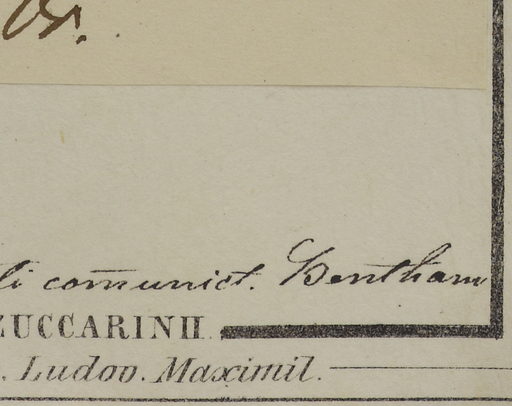 comunict. Bentham
ZUCCARINII.
. Ludov. Maximil.